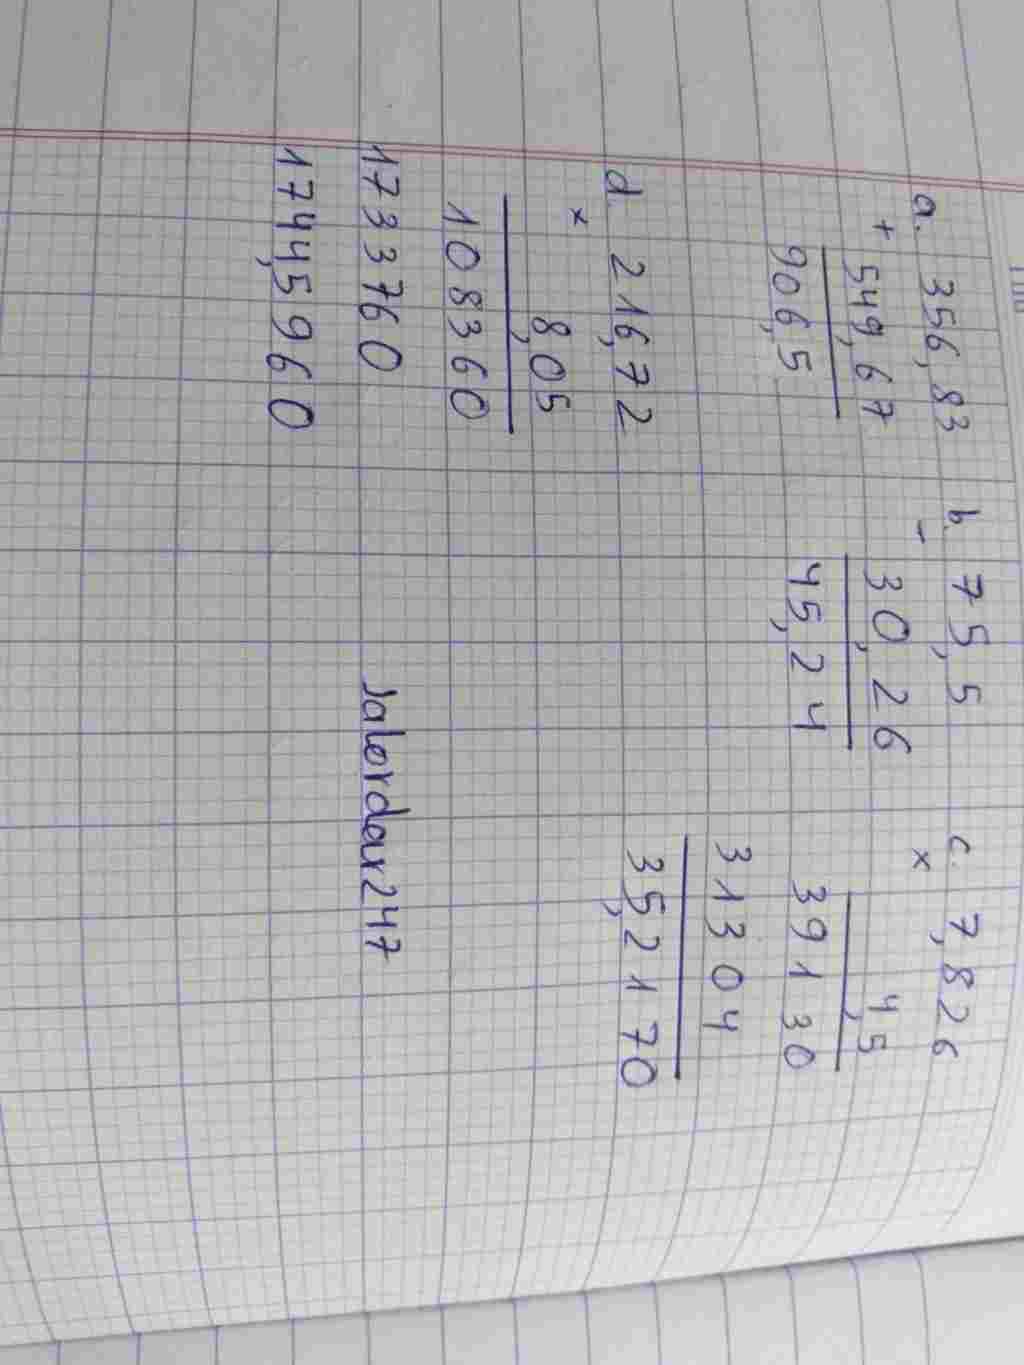 a. 356,83
+ 549,67
906,5
b. 75,5
- 30,26
45,24
c. 7,826
x 4,5
39130
31304
35,2170
d. 216,72
x 8,05
108360
1733760
1744,5960
Jalordar247